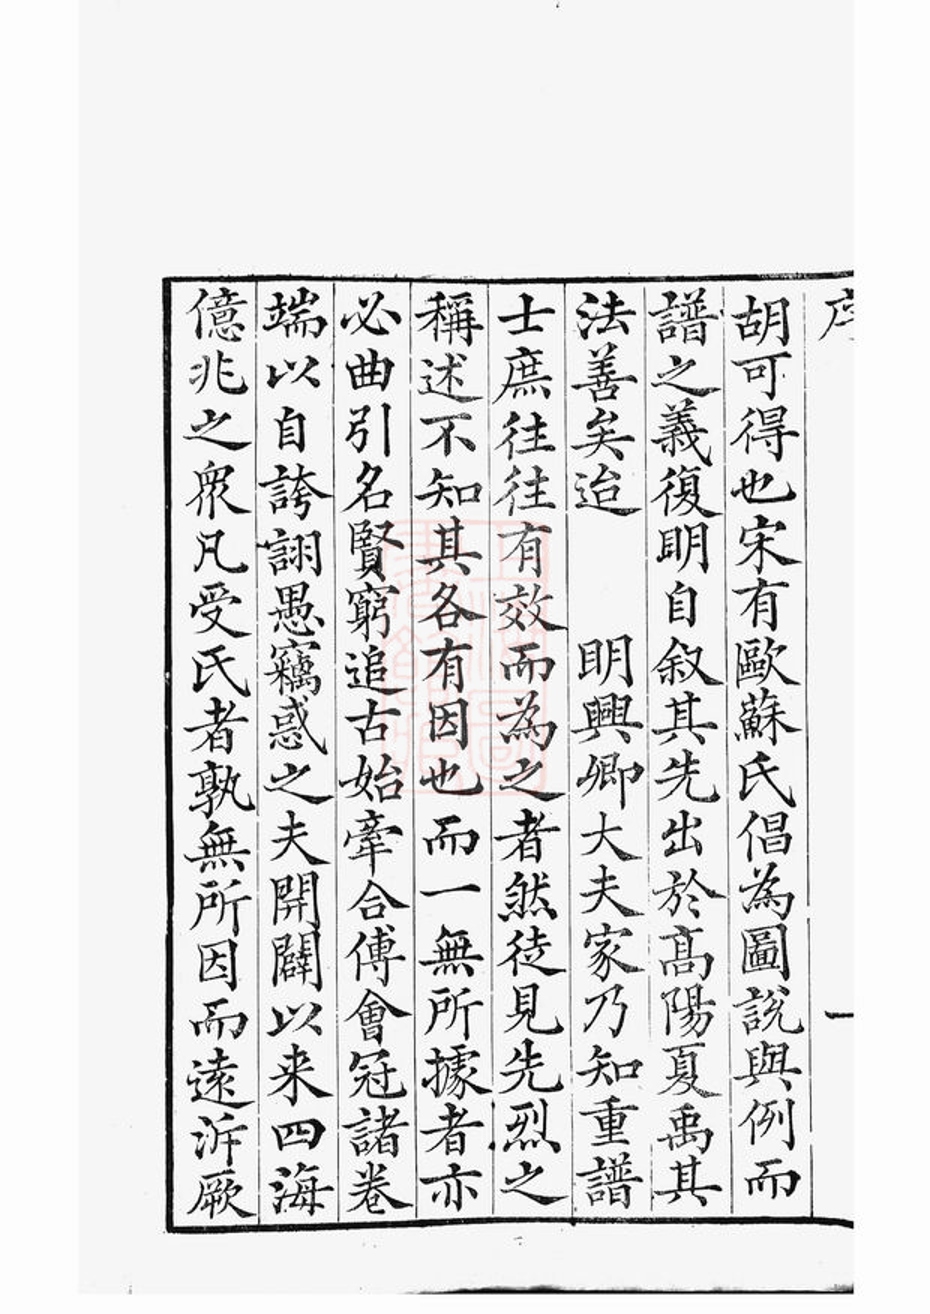 序 一
胡可得也宋有歐蘇氏倡為圖說與例而
譜之義復明自叙其先出於高陽夏禹其
法善矣迨 明興卿大夫家乃知重譜
士庶往往有效而為之者然徒見先烈之
稱述不知其各有因也而一無所據者亦
必曲引名賢窮追古始牽合傅會冠諸卷
端以自誇詡愚竊惑之夫開闢以来四海
億兆之眾凡受氏者孰無所因而遠泝厥